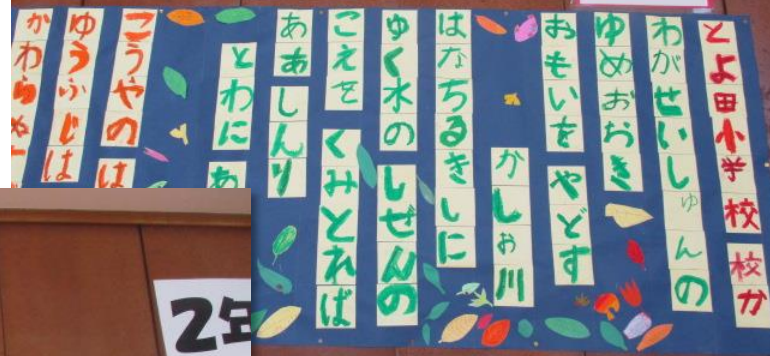 とよ田小学校 校か
わがせいしゅんの
ゆめおおき
おもいを やどす
かしお川
はなちるきしに
ゆく水の しぜんの
こえを くみとれば
ああ しんり
とわに あ
こうやの は
ゆうふじは
かわらぬ
2年